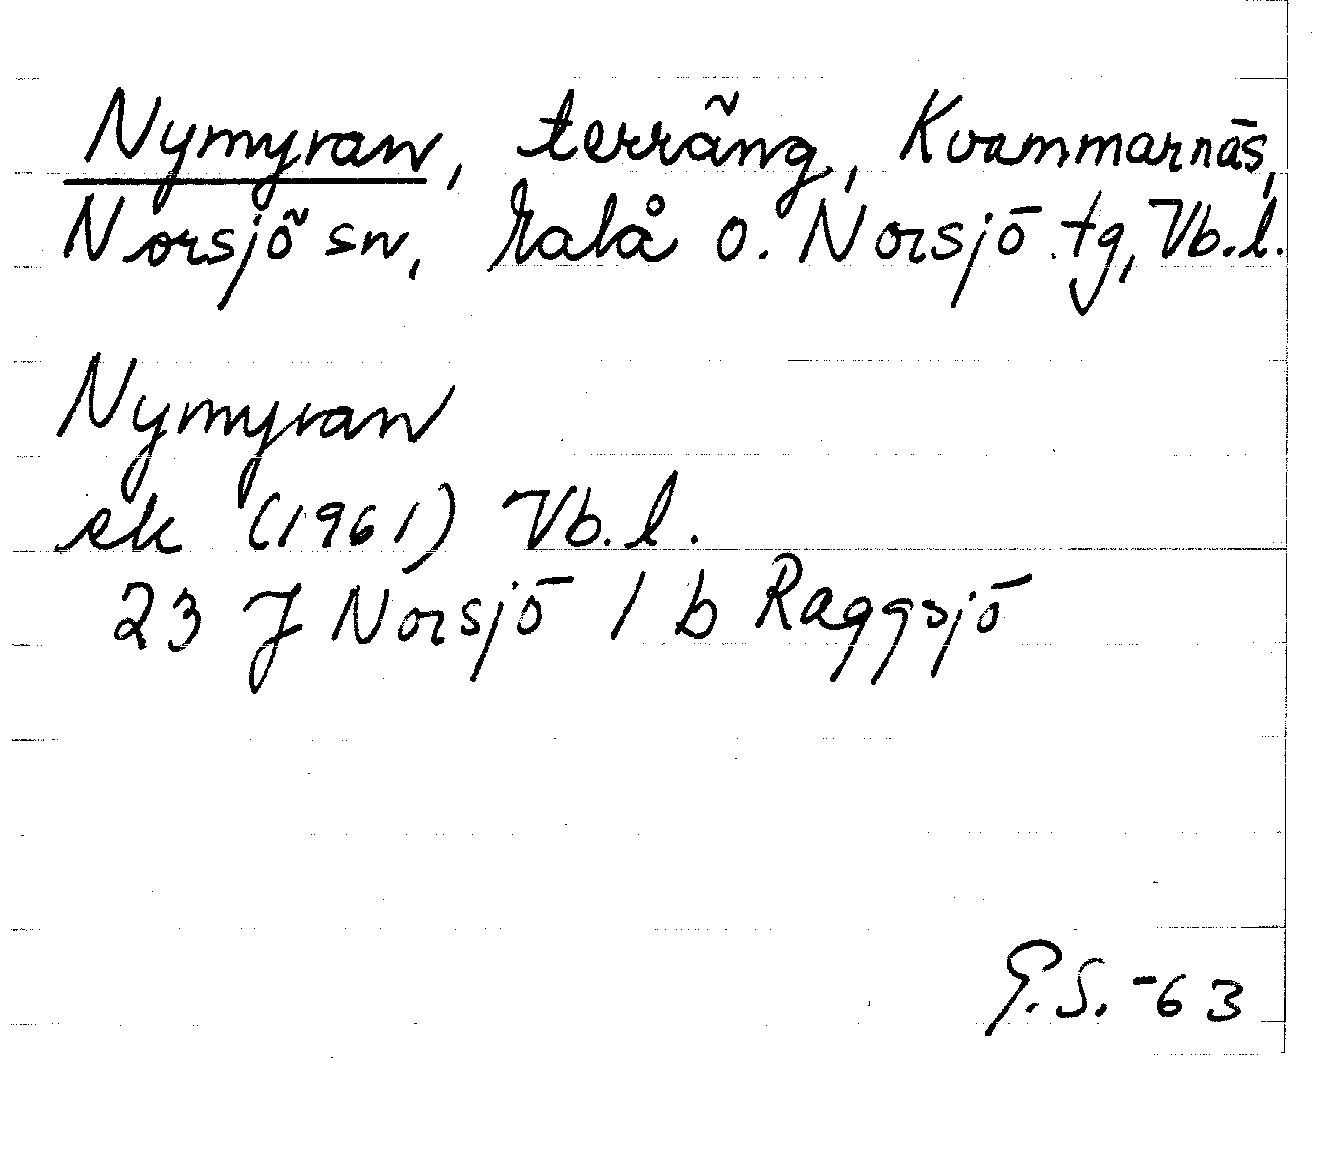 Nymyran, terräng, Kvammarnäs,
Norsjö sn, Malå o. Norsjö tg, Vb.l.
Nymyran
ek (1961) Vb.l.
23 J Norsjö 1 b Raggsjö
G.S. -63